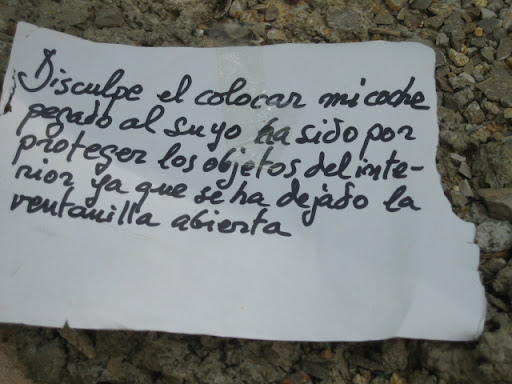 Disculpe el colocar mi coche
pegado al suyo ha sido por
proteger los objetos del inte-
rior ya que se ha dejado la
ventanilla abierta